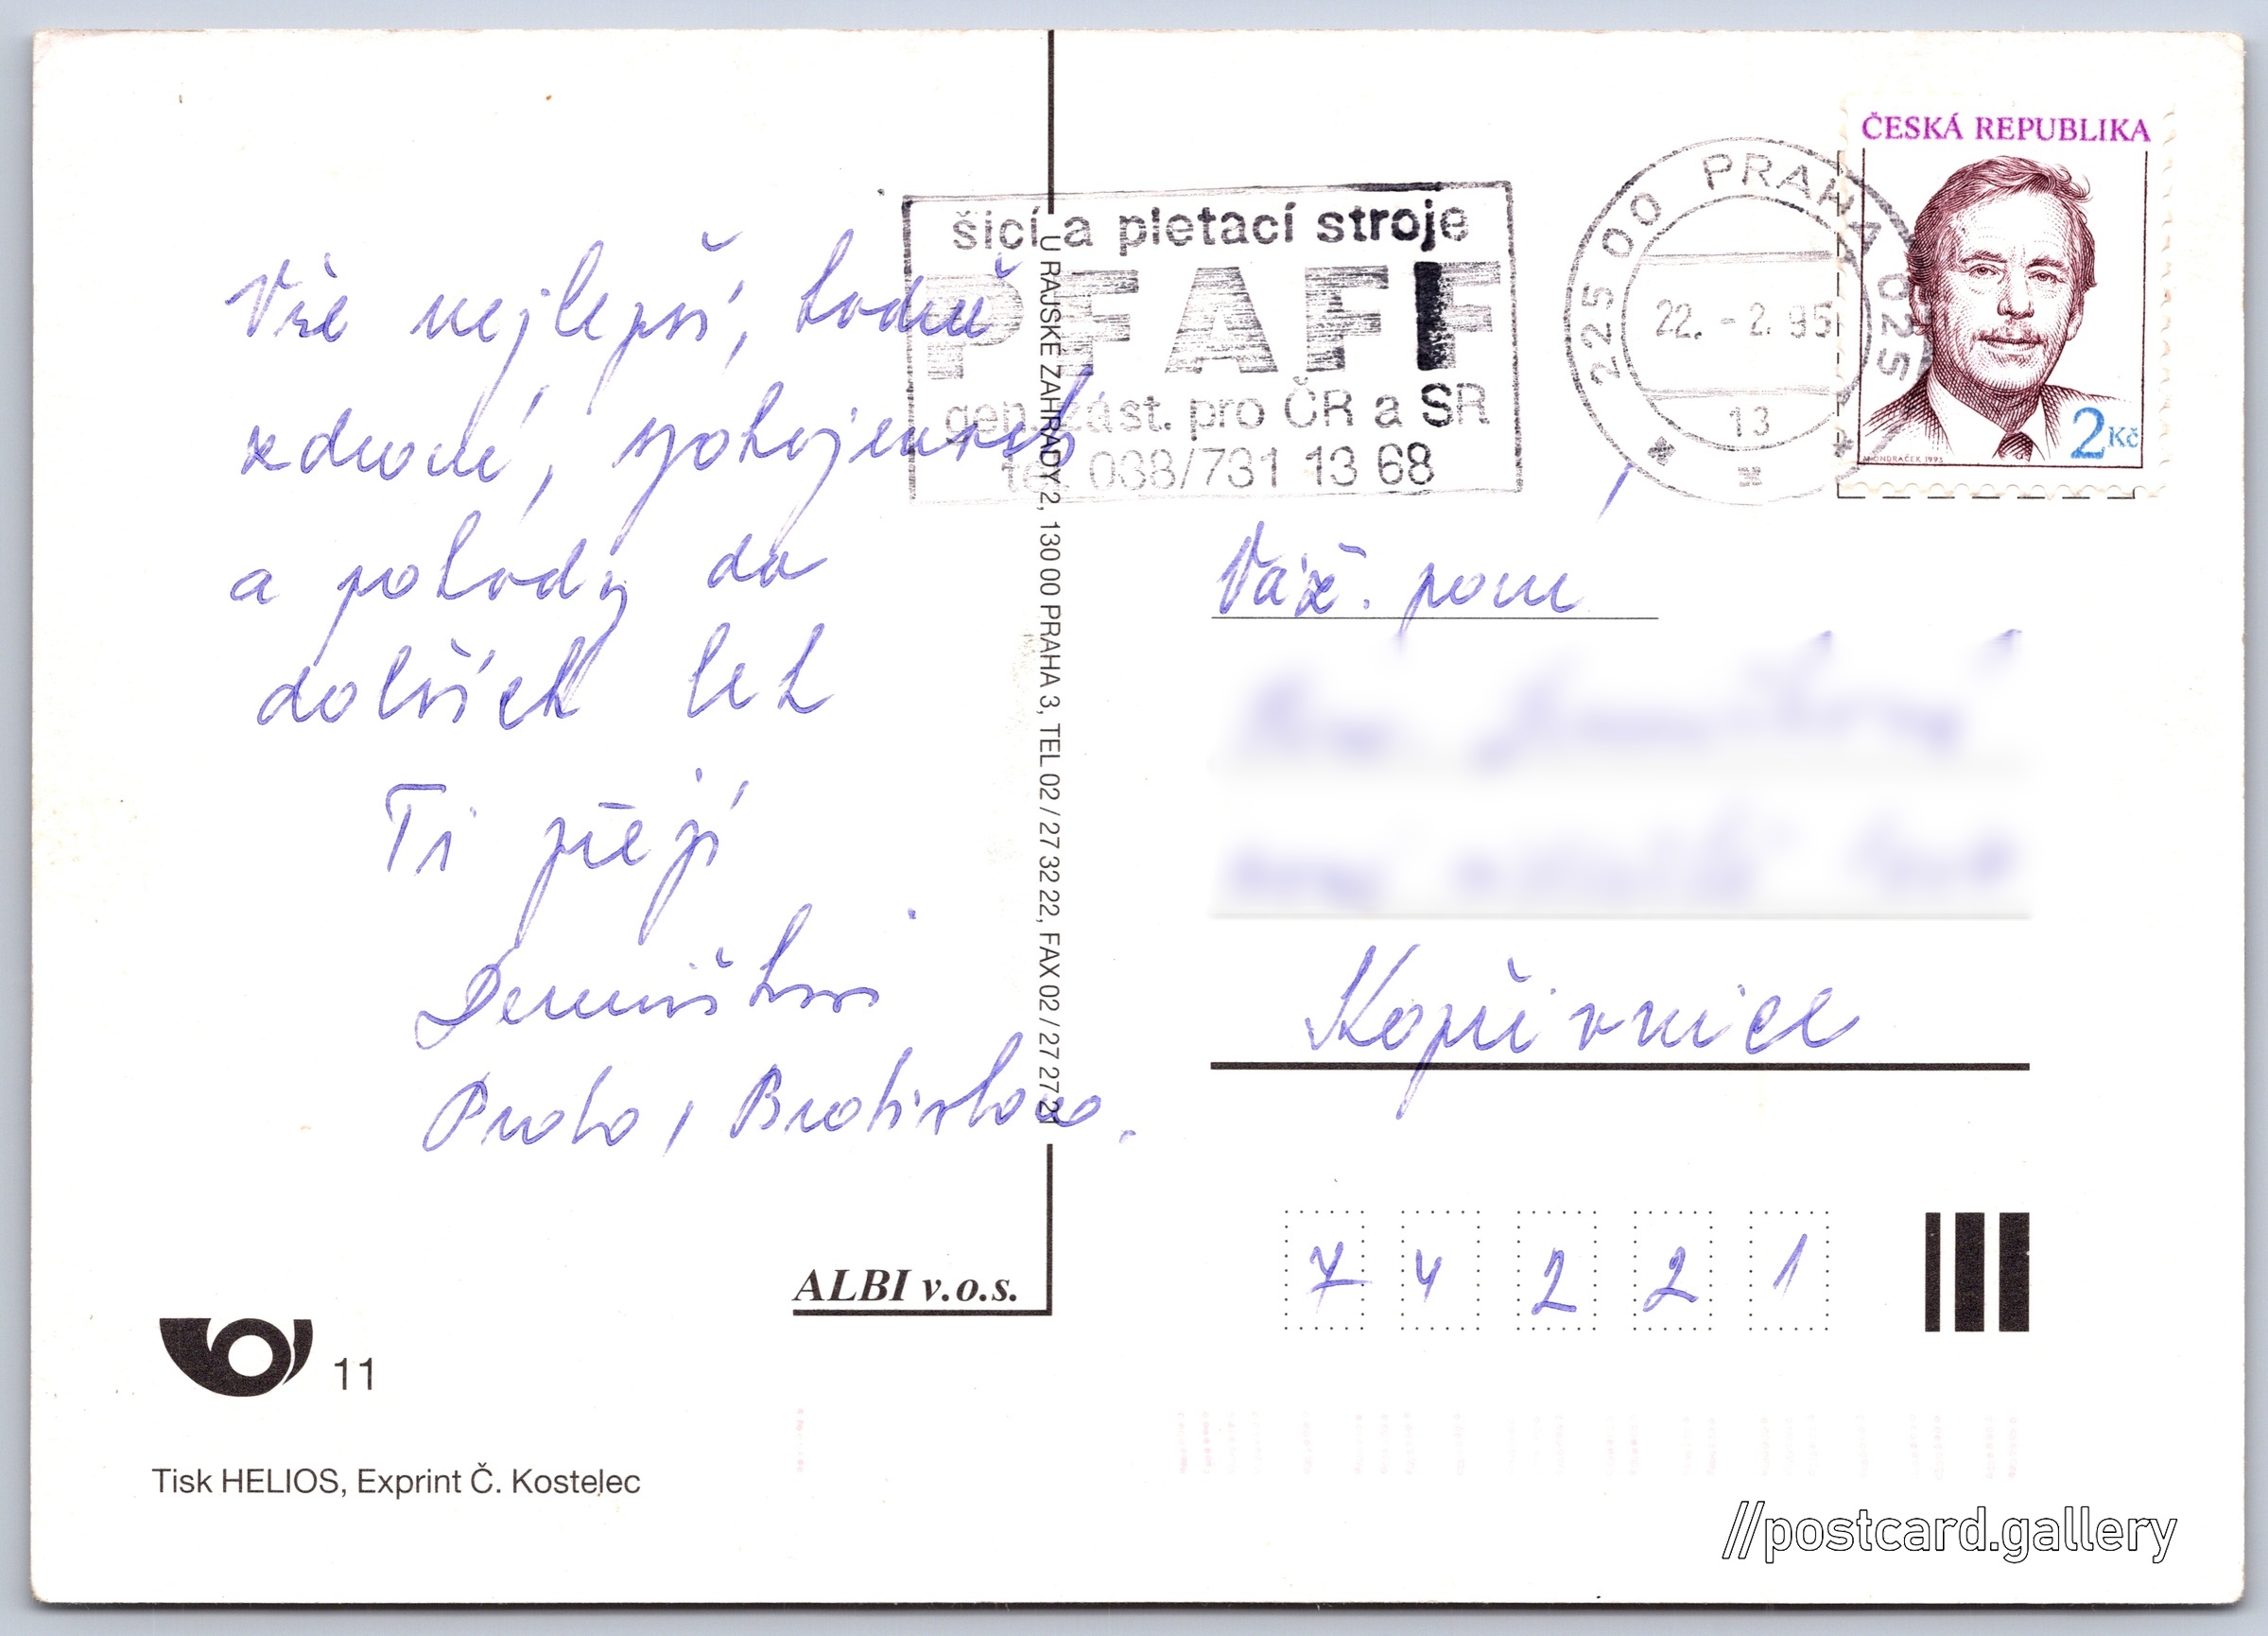 Vše nejlepší, hodně
zdraví, spokojenosti
a pohody do
dalších let
Ti přejí
Praha, Bratislava.
ALBI v.o.s.
11
Tisk HELIOS, Exprint Č. Kostelec
U RAJSKÉ ZAHRADY 2, 130 00 PRAHA 3, TEL 02 / 27 32 22, FAX 02 / 27 27 21
šicí a pletací stroje
PFAFF
gen. zást. pro ČR a SR
tel. 068/731 13 68
225 00 PRAHA 025
22. - 2. 95
13
ČESKÁ REPUBLIKA
2 Kč
ONDRÁČEK 1993
Váž. paní
Kopřivnice
7 4 2 2 1
//postcard.gallery